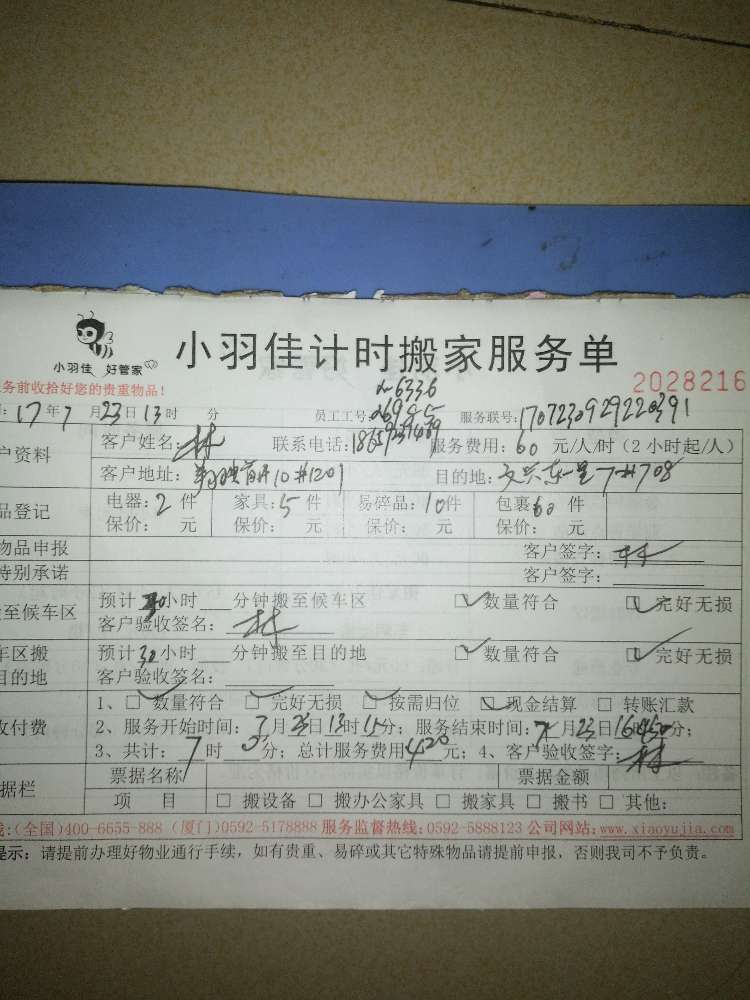 小羽佳 好管家
小羽佳计时搬家服务单
务前收拾好您的贵重物品!
2028216
17年7月23日13时 分 员工工号: 服务联号:1707230929220391
户资料
客户姓名:林 联系电话: 服务费用:60 元/人/时(2小时起/人)
客户地址: 目的地:
品登记
电器:2件 家具:5件 易碎品:10件 包裹60件
保价: 元 保价: 元 保价: 元 保价: 元
物品申报 客户签字:林
特别承诺 客户签字:
至候车区
预计30小时 分钟搬至候车区 □数量符合 □完好无损
客户验收签名:林
车区搬
目的地
预计30小时 分钟搬至目的地 □数量符合 □完好无损
客户验收签名:
收付费
1、□数量符合 □完好无损 □按需归位 □现金结算 □转账汇款
2、服务开始时间:7月23日13时15分;服务结束时间:7月23日16时 分;
3、共计:7时 分;总计服务费用420元;4、客户验收签字:林
据栏
票据名称 票据金额
项 目 □搬设备 □搬办公家具 □搬家具 □搬书 □其他:
线:(全国)400-6655-888 (厦门)0592-5178888 服务监督热线:0592-5888123 公司网站:www.xiaoyujia.com
提示:请提前办理好物业通行手续,如有贵重、易碎或其它特殊物品请提前申报,否则我司不予负责。